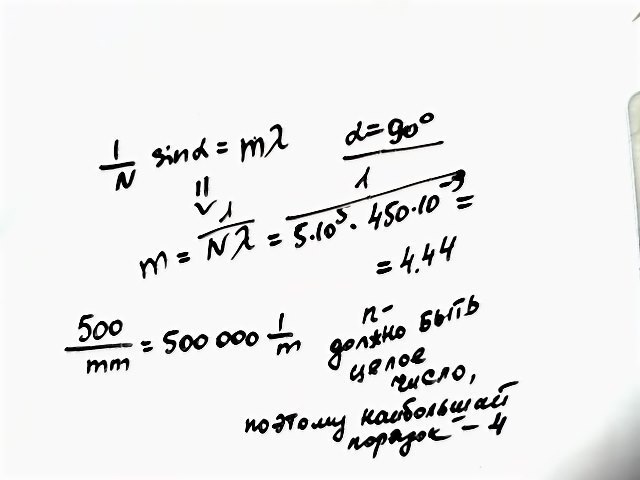 1/N sinα = mλ
α = 90°
⇓
m = 1/Nλ = 1/5·10⁵·450·10⁻⁹ =
= 4.44
500/mm = 500 000 1/m
n-
должно быть
целое
число,
поэтому наибольший
порядок - 4